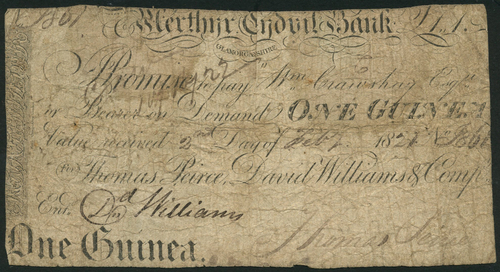 1861 Merthyr Tydvil Bank £1.1.
GLAMORGANSHIRE
I Promise to pay Wm. Crawshay Esqr.
or Bearer on Demand ONE GUINEA
Value received 2nd Day of Feby 1821
Thomas Peirce, David Williams & Comp
Ent. Dd Williams
One Guinea. Thomas